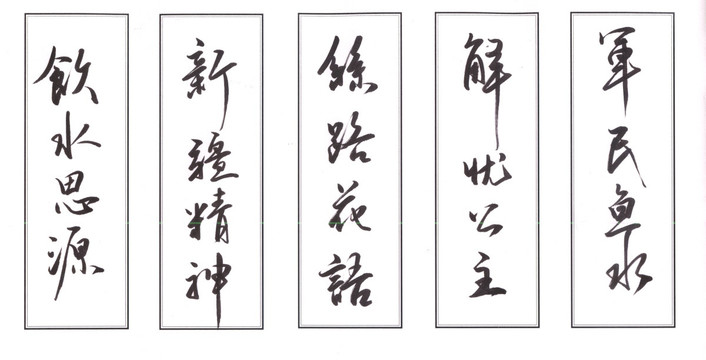 軍民鱼水
解忧公主
絲路花語
新疆精神
飲水思源